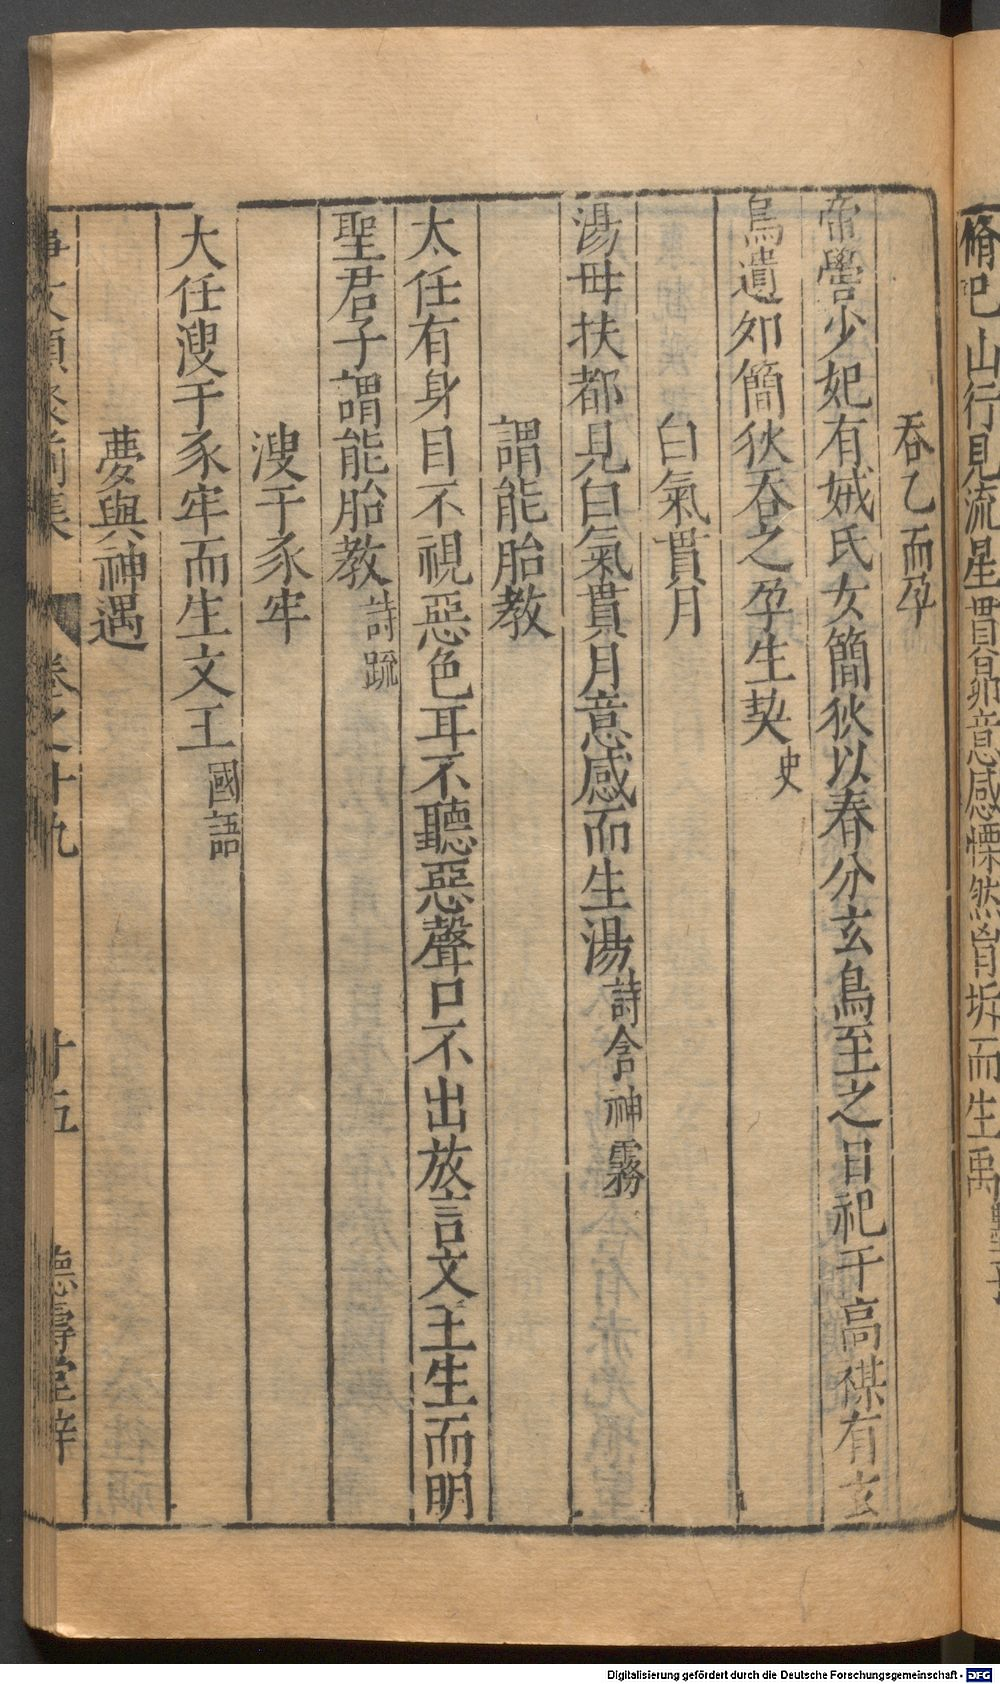 脩巳山行見流星貫昴意感慄然胷坼而生禹
吞乙而孕
帝嚳少妃有娀氏女簡狄以春分玄鳥至之日祀于高禖有玄
鳥遺卵簡狄吞之孕生契史
白氣貫月
湯母扶都見白氣貫月意感而生湯詩含神霧
謂能胎教
太任有身目不視惡色耳不聽惡聲口不出放言文王生而明
聖君子謂能胎教詩疏
溲于豕牢
大任溲于豕牢而生文王國語
夢與神遇
事文類聚前集 卷之十九 廿五 德壽堂梓
Digitalisierung gefördert durch die Deutsche Forschungsgemeinschaft - DFG